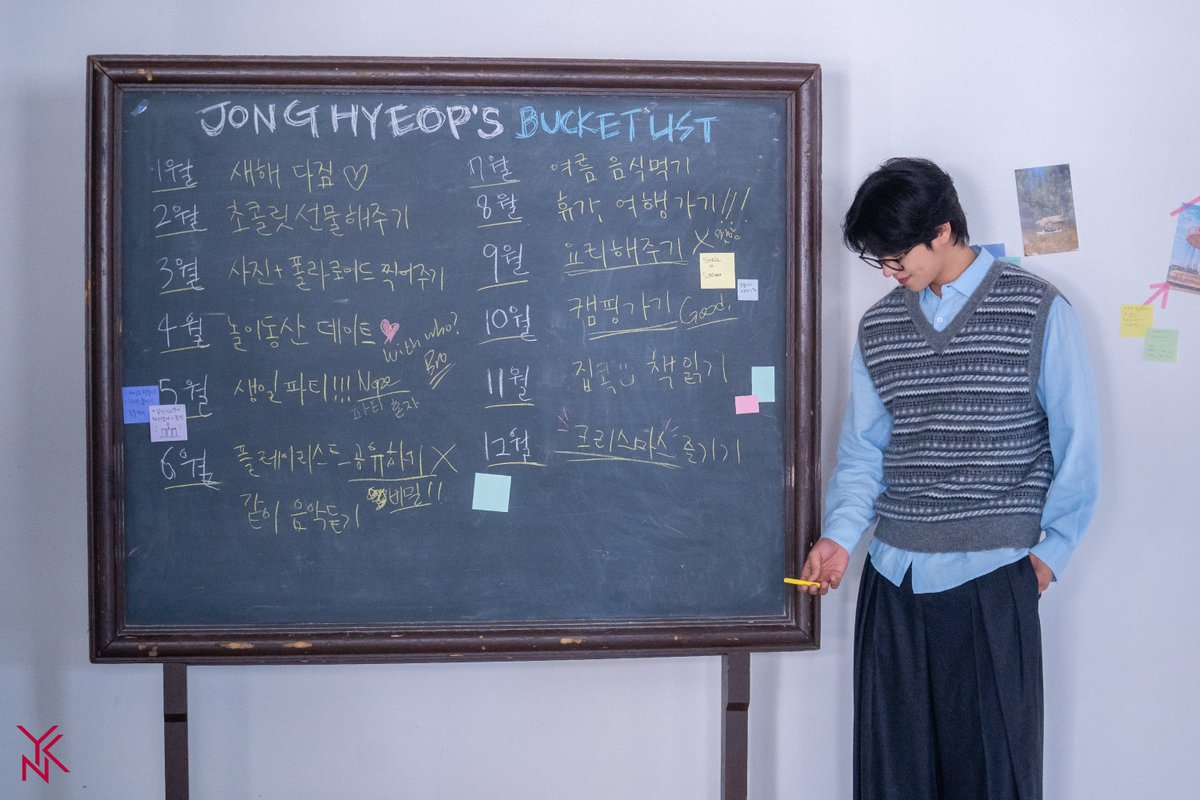 JONGHYEOP'S BUCKET LIST
1월 새해 다짐 ♡
2월 초콜릿 선물해주기
3월 사진 + 폴라로이드 찍어주기
4월 놀이동산 데이트
with who?
Bro
5월 생일파티!!! Nope
파티 혼자
6월 플레이리스트 공유하기 X
비밀!!
같이 음악듣기
7월 여름 음식먹기
8월 휴가, 여행가기!!!
9월 요리해주기 X
10월 캠핑가기 Good,
11월 집콕 책 읽기
12월 크리스마스 즐기기
YNK